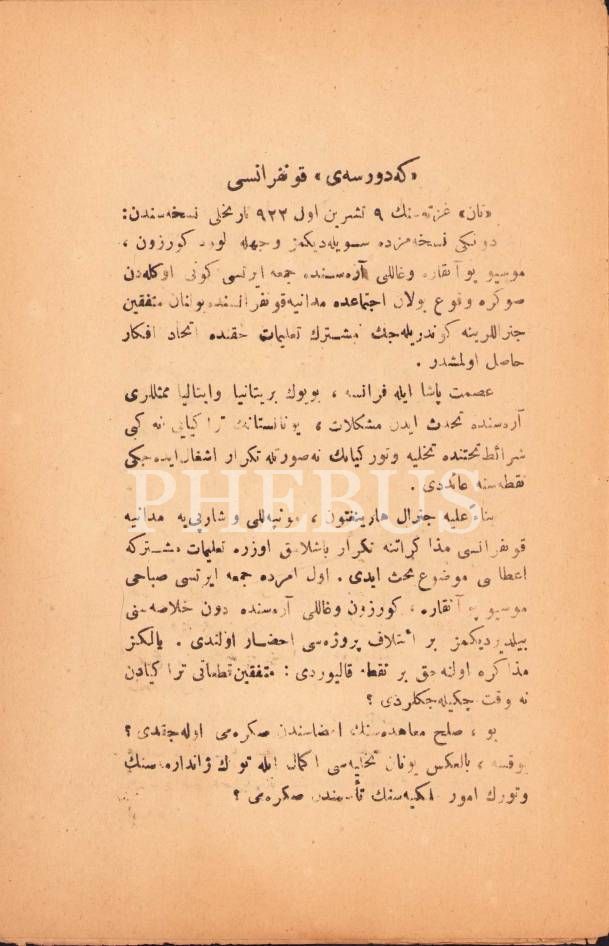 «كه دورسه‌ی» قونفرانسی
«تان» غزته‌سنك ٩ تشرین اول ٩٢٢ تاریخلی نسخه‌سندن:
دونكی نسخه‌مزده سویله‌دیكمز وجهله لورد كورزون ،
موسیو پوآنقاره وغاللی آره‌سنده جمعه ایرتسی كونی اوكله‌دن
صوكره وقوع بولان اجتماعده مدانیه قونفرانسنده بولنان متفقین
جنراللرینه كوندریله‌جك مشترك تعلیمات حقنده اتحاد افكار
حاصل اولمشدر .
عصمت پاشا ایله فرانسه ، بویوك بریتانیا وایتالیا ممثللری
آره‌سنده تحدث ایدن مشكلات ، یونانستانك تراكیایی نه كبی
شرائط تحتنده تخلیه وتوركیانك نه صورتله تكرار اشغال ایده‌جكی
نقطه‌سنه عائددی .
PHEBUS
بناءً علیه جنرال هارینغتون ، مونبه‌للی وشارپی‌یه مدانیه
قونفرانسی مذاكراتنه تكرار باشلامق اوزره تعلیمات مشتركه
اعطاسی موضوع بحث ایدی . اول امرده جمعه ایرتسی صباحی
موسیو پوآنقاره ، كورزون وغاللی آره‌سنده دون خلاصه‌سنی
بیلدیردیكمز بر ائتلاف پروژه‌سی احضار اولندی . یالكز
مذاكره اولنه‌جق بر نقطه قالیوردی : متفقین قطعاتی تراكیادن
نه وقت چكیله‌جكلردی ؟
بو ، صلح معاهده‌سنك امضاسندن صكره‌می اوله‌جقدی ؟
یوقسه ، بالعكس یونان تخلیه‌سی اكمال ایله تورك ژاندارمه‌سنك
وتورك امور ملكیه‌سنك تأسسندن صكره‌می ؟